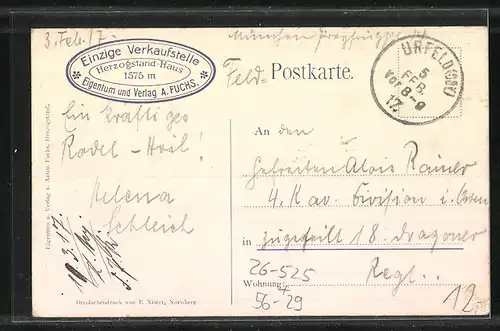 3. Feb. 17.
München
Einzige Verkaufsstelle
Herzogstand-Haus
1575 m
Eigentum und Verlag A. FUCHS.
Feld-Postkarte.
URFELD
5 FEB.
Vor 8-9
17.
Ein kräftiges
Rodel-Heil!
Helena
Schleich
10.3.17.
An den
Gefreiten Alois Rainer
4. Kav. Division i. Osten
in zugeteilt 18. Dragoner
Regt..
Wohnung:
26-525
56-29
12
Eigentum u. Verlag v. Anton Fuchs, Herzogstand.
Dreifarbendruck von E. Nister, Nürnberg